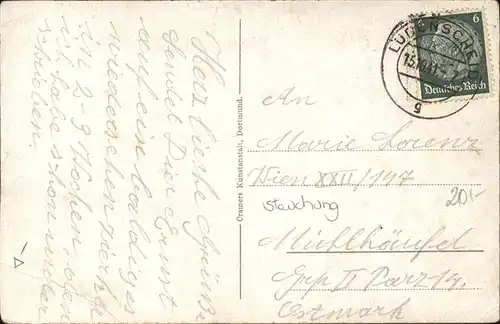 Herzliche Grüße
sendet Dir Ernst
auf ein baldiges
wiedersehen vieleicht
in 2-3 Wochen, oben
ich habe schon runter
schrieben.
Cramers Kunstanstalt, Dortmund.
LÜDENSCHEID
15.10.41
g
6
Deutsches Reich
An
Marie Lorenz
Wien XXII/147
Stauchung
20.-
Mühlhäufel
Grp II Parz 14.
Ostmark